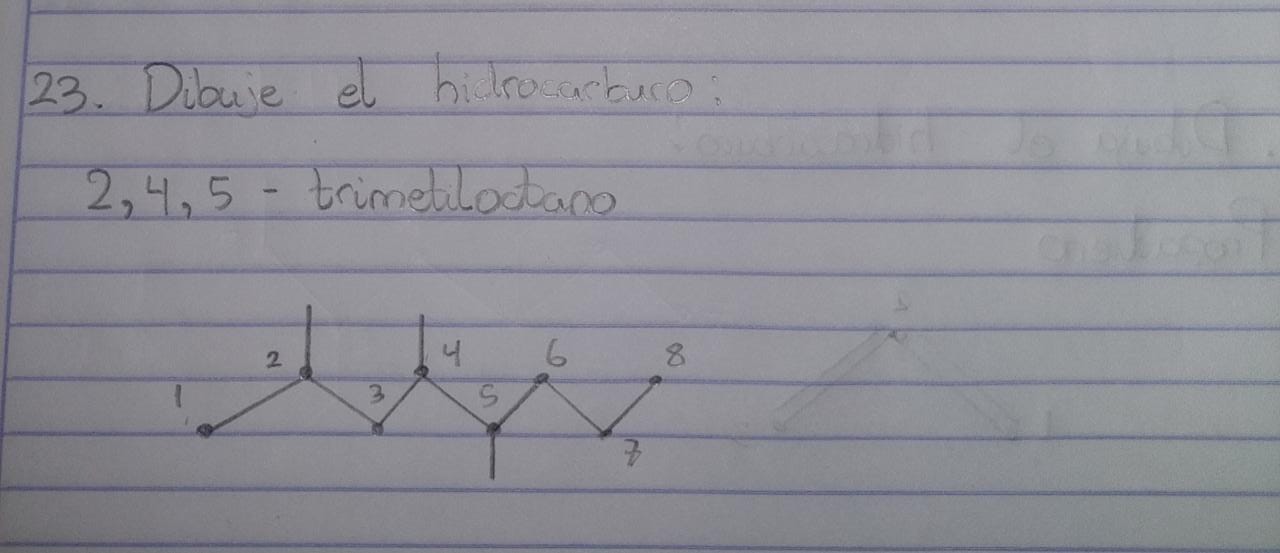 23. Dibuje el hidrocarburo:
2,4,5 - trimetiloctano
2 4 6 8
1 3 5
7